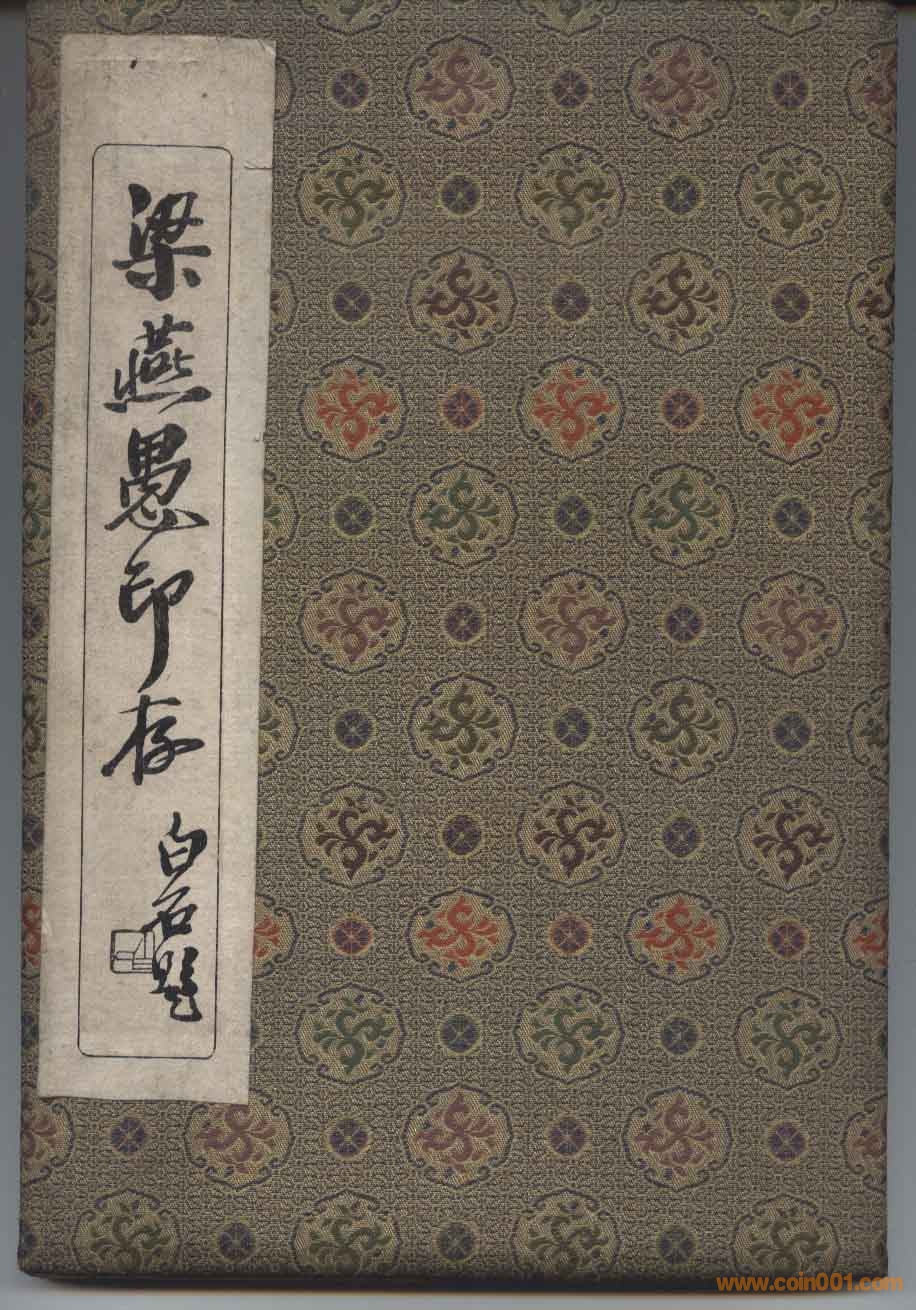 梁燕愚印存
白石題
www.coin001.com